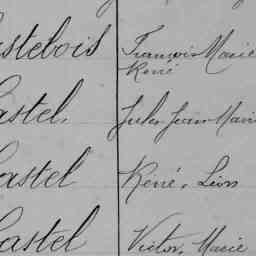 astebois François Marie
René
astel. Jules Jean Marie
Castel René, Léon
Castel Victor, Marie